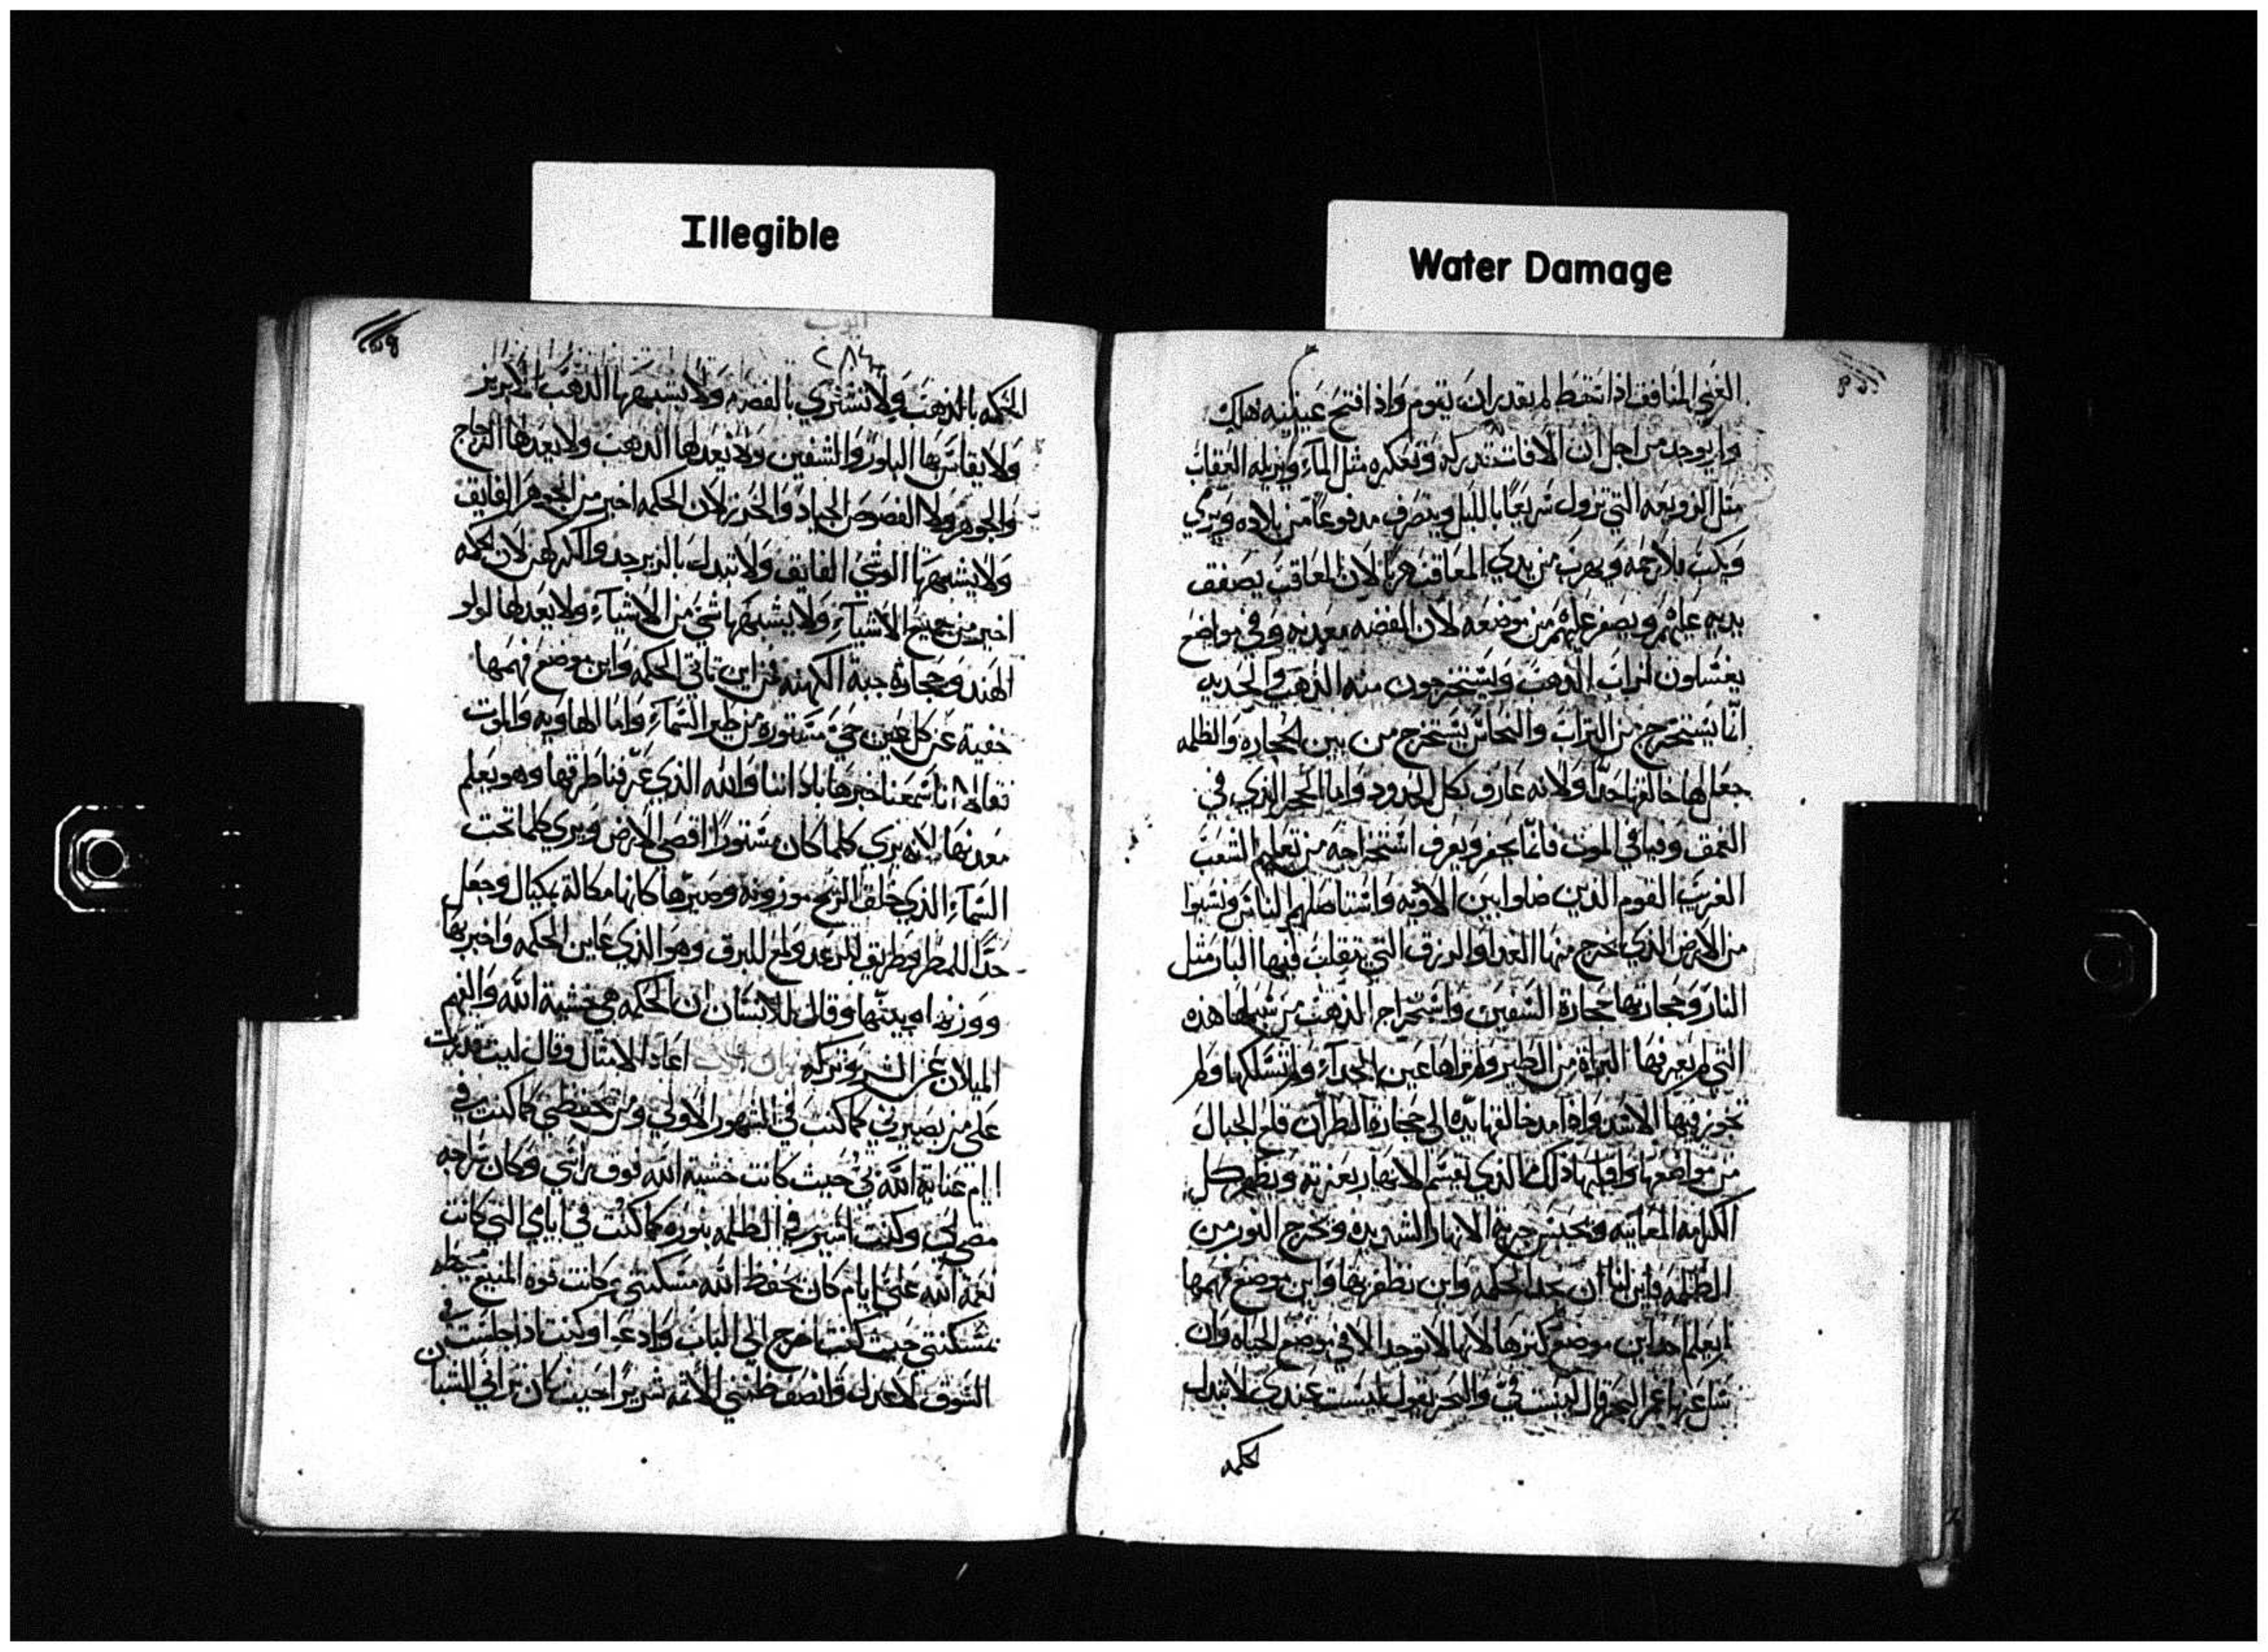 Illegible
Water Damage
الغني المنافق اذا تخط لم يقدر ان يقوم واذا فتح عينيه هلك
ولم يوجد من اجل ان الافات تدركه وتعكره مثل الماء ويزيله العقاب
مثل الزوبعه التي تزول سريعا بالليل وينصرف مدفوعا من بلاده ويرمي
بلا رحمه ويهرب من يدي المعاقب هربا لان المعاقب يصفق
يديه عليهم ويصفر عليهم من موضعه لان الفضه معدنه وفي مواضع
يغسلون تراب الذهب ويستخرجون منه الذهب والحديد
انما يستخرج من التراب والنحاس يستخرج من بين الحجاره والظلمه
جعل لها خالقها حدا ولانه عارف بكل الحدود واما الحجر الذي في
العمق وفيافي الموت فانما يحفر ويعرف استخراجه من تعليم الشعب
الغريب القوم الذين ضلوا بين الاوبه واستاصلهم الناس ونسبوا
من الارض الذي اخرج منها الغدا والرزق التي تنقلب فيها النار مثل
النار وحجارتها حجارة السفين واستخراج الذهب من سبلها هذه
التي لم يعرفها البزاة من الطير ولم تراها عين الحداء ولم تسلكها ولم
تجوز فيها الاسد واذا مد خالقها يده الى حجارة الظران قلع الجبال
من مواضعها واقلبها ذلك الذي تقسم الانهار بعزته ويظهر كل
المعاينه ويحبس جرية الانهار الشديده ويخرج النور من
الظلمه فاين لنا ان نجد الحكمه واين نظفر بها واين موضع فهمها
لم يعلم احد اين موضع كنزها لانها لا توجد الا في موضع الحياه وان
سل عنها غمر البحر قال ليست في والبحر يقول ليست عندي لا تبدل
الحكمه
ايوب
٢٨٤
الحكمه بالذهب ولا تشتري بالفضه ولا يشبهها الذهب الابريز
ولا يقاس بها البلور والسفين ولا يعدلها الذهب ولا يعدلها الزجاج
والجوهر ولا الفصوص الجياد والخرز لان الحكمه اخير من الجوهر الفايق
ولا يشبهها الوشي الفايق ولا تبدل بالزبرجد والكركهن لان الحكمه
اخير من جميع الاشياء ولا يشبهها شي من الاشياء ولا يعدلها لولو
الهند وحجارة جبة الكهنه فمن اين تاتي الحكمه واين موضع فهمها
خفية عن كل عين حي مستوره من طير السماء واما الهاويه والموت
فقالا انا سمعنا خبرها باذاننا والله الذي عرفنا طرقها وهو يعلم
معدنها لانه يري كلما كان مستورا اقصي الارض ويري كلما تحت
السماء الذي خلق الريح موزونه وصيرها كانها مكالة بكيال وجعل
حدا للمطر وطريق للرعد ولمع للبرق وهو الذي عاين الحكمه واخبر بها
ووزنها وبينها وقال للانسان ان الحكمه هي خشية الله والفهم
الميلان عن الشر وتركه اعاد الامثال وقال ليت
علي من يصيرني كما كنت في الشهور الاولي ومن حفظني كما كنت في
ايام عناية الله بي حيث كانت خشية الله فوق راسي وكان سراجه
مضي لي وكنت اسير في الظلمه بنوره كما كنت في ايامي التي كانت
نعمة الله علي ايام كان يحفظ الله مسكنتي وكانت قوة المنيع محيطه
بمسكنتي حيث كنت اخرج الي الباب وادعوا وكنت اذا جلست في
السوق لاعدل وانصف حيث كان يراني الشبان